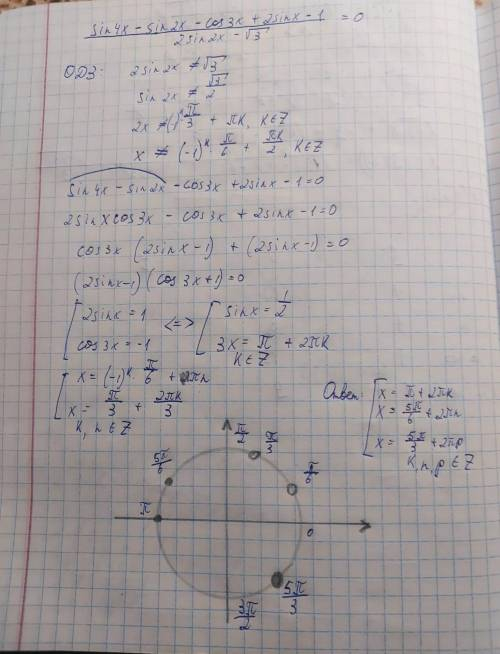 (sin4x - sin2x - cos3x + 2sinx - 1) / (2sin2x - √3) = 0
ОДЗ: 2sin2x ≠ √3
sin2x ≠ √3/2
2x ≠ (-1)^k π/3 + πk, k∈Z
x ≠ (-1)^k · π/6 + πk/2, k∈Z
sin4x - sin2x - cos3x + 2sinx - 1 = 0
2sinxcos3x - cos3x + 2sinx - 1 = 0
cos3x (2sinx - 1) + (2sinx - 1) = 0
(2sinx - 1)(cos3x + 1) = 0
[ 2sinx = 1 <=> [ sinx = 1/2
cos3x = -1 3x = π + 2πk
k∈Z
[ x = (-1)^k · π/6 + πn
x = π/3 + 2πk/3
k, n ∈ Z
Ответ: [ x = π + 2πk
x = 5π/6 + 2πn
x = 5π/3 + 2πp
k, n, p ∈ Z
π/2 π/3
5π/6 π/6
π 0
3π/2 5π/3